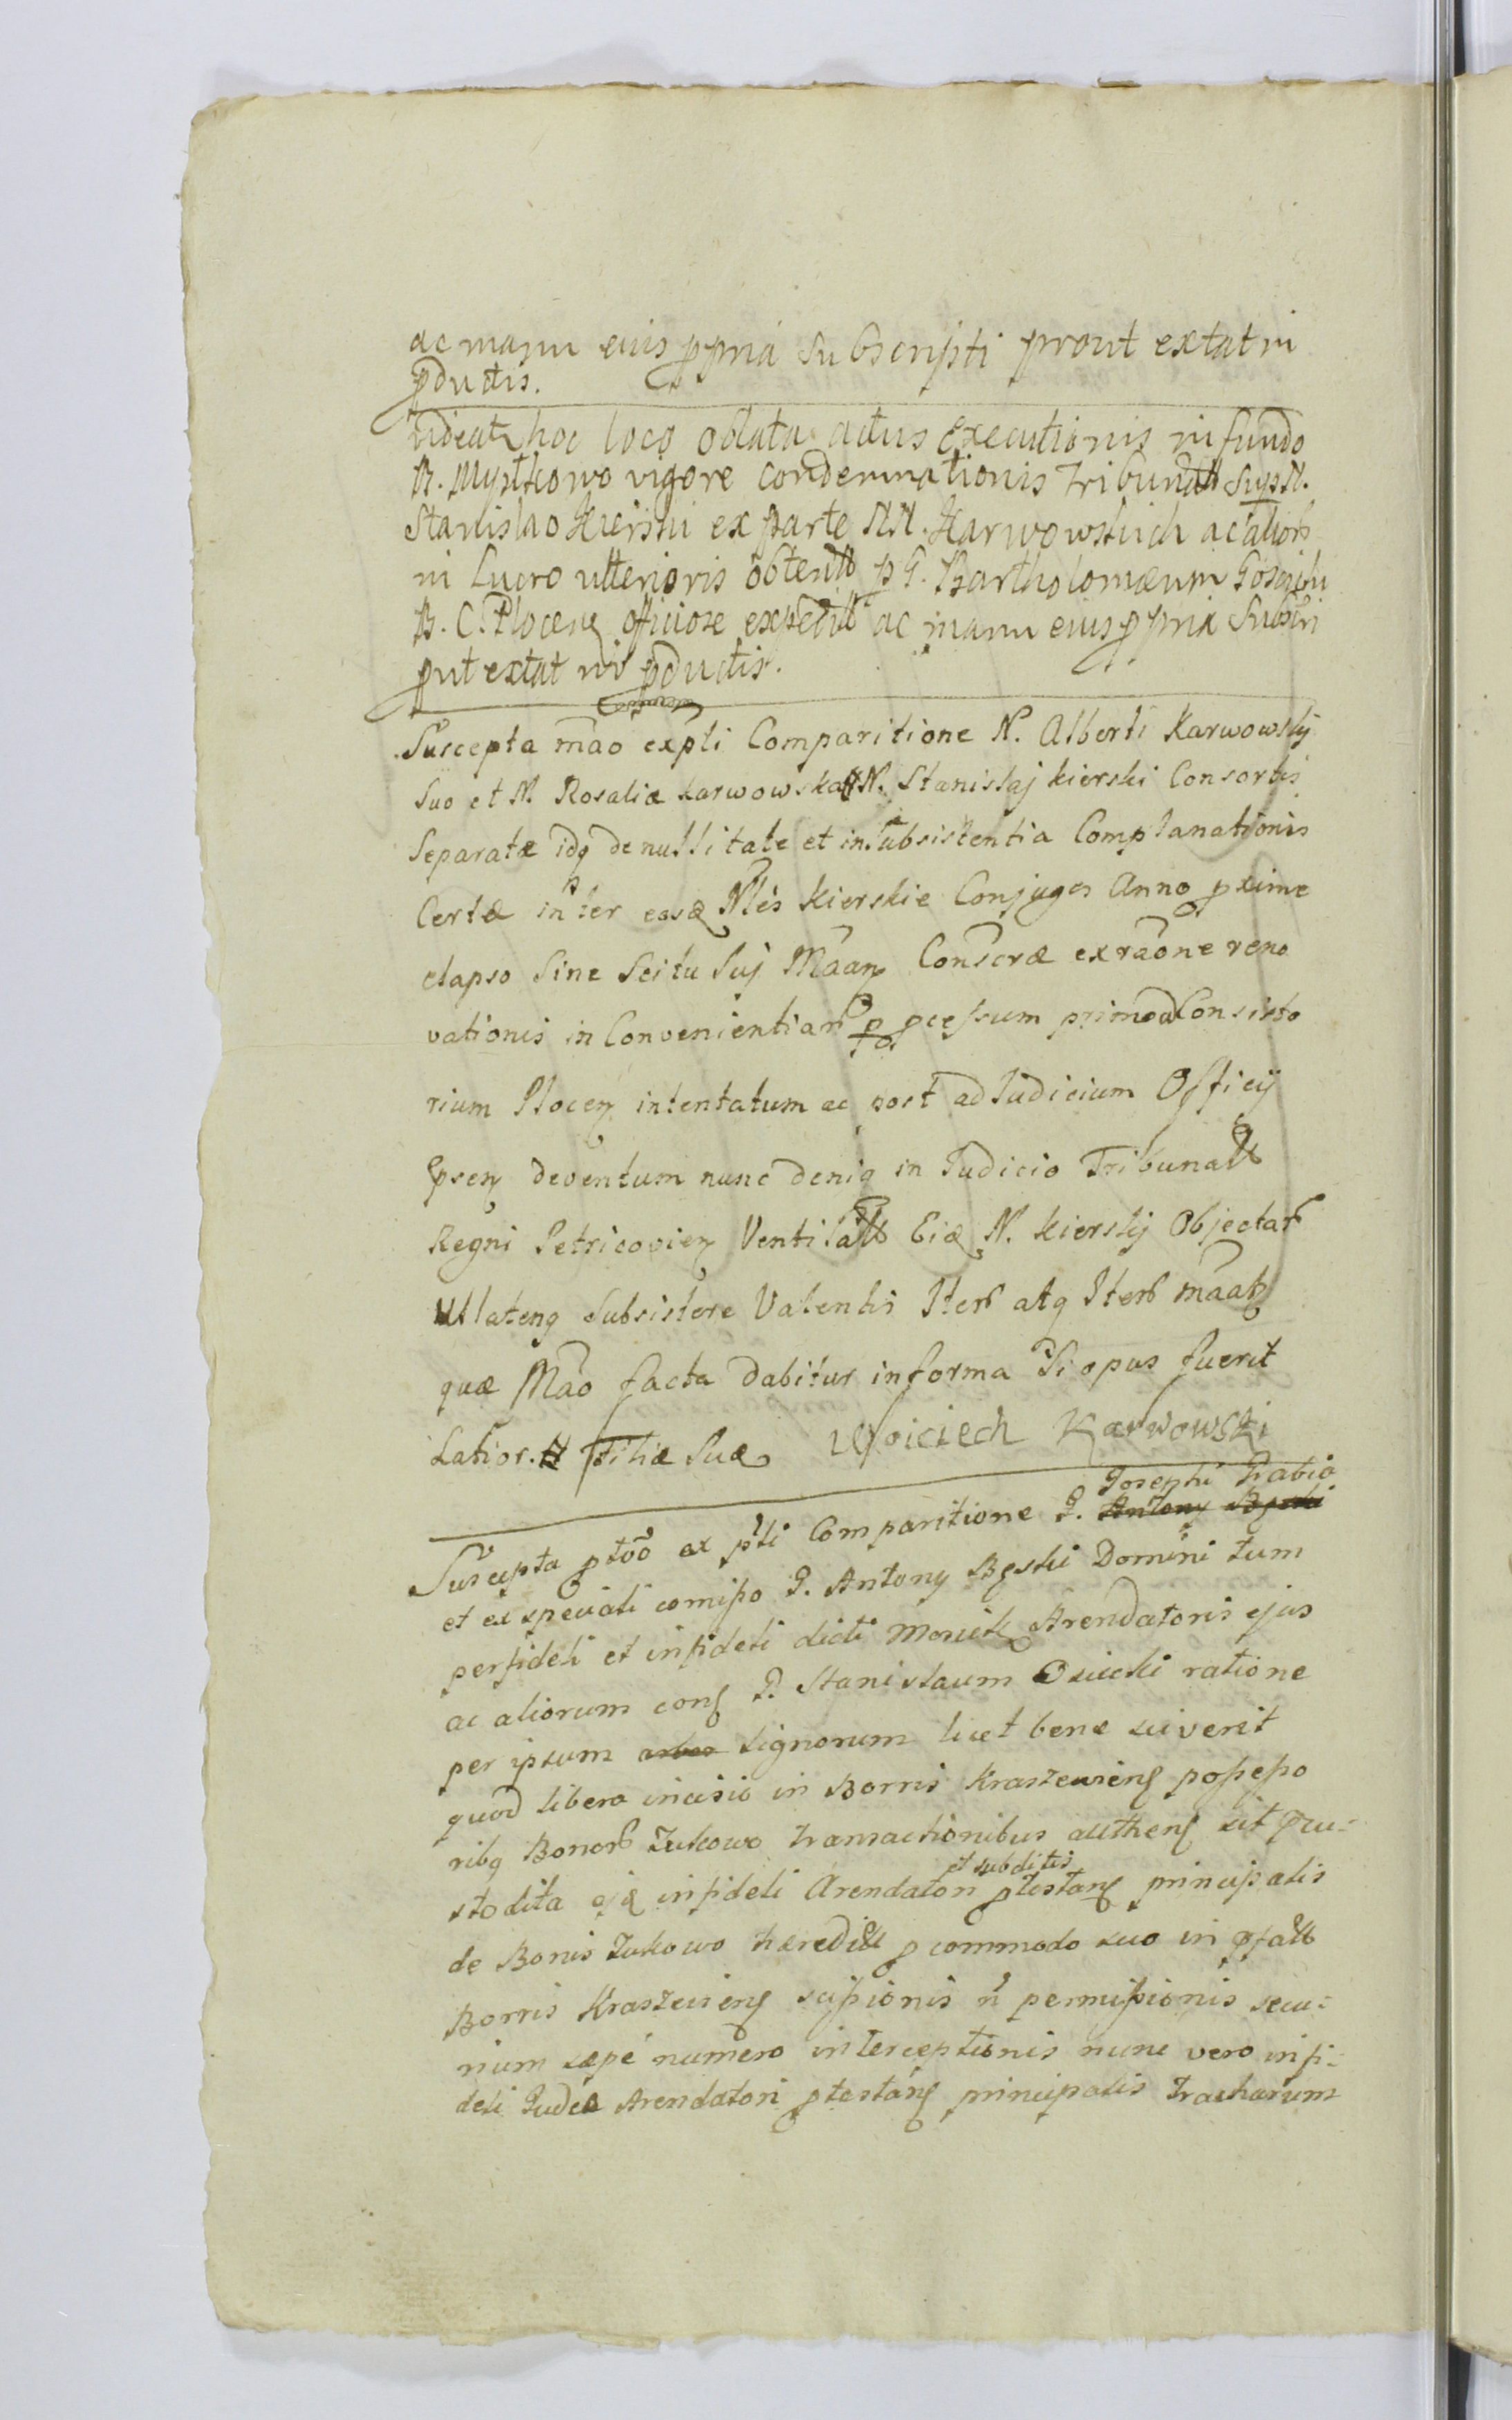 ac manu eius ppria Subscripti prout extat in
pductis.
videat hoc loco oblata actus Executionis in fundo
B. Mystkowo vigore condemnationis Tribunal Sup N.
Stanislao Kierski ex parte NN. Karwowskich ac alior
in Lucro ulterioris obtent p G. Bartholomæum
B. C. Plocens officiose expedit ac manu eius ppria Subscri
put extat in pductis.
Suscepta mão expli Comparitione N. Alberti Karwowskij
Suo et N. Rosaliæ Karwowska N. Stanislaj Kierski Consortis
Separatæ idq de nullitate et insubsistentia Complanationis
Certæ inter eosq Nles Kierskie Conjuges Anno pxime
elapso Sine Scitu Suj Consortæ ex raone reno
vationis in Convenientiar p pcessum primo ad Consisto
rium Plocen intentatum ac post ad Iudicium Officij
Ipsen deventum nunc deniq in Iudicio Tribunall
Regni Petricovien Ventilall Eiq N. Kierskij Objectar
Ullatenq Subsistere Valentis Iter atq Iter
quæ Mão facta dabitur in forma Si opus fuerit
Latior. # Filiæ Suæ Woiciech Karwowski
Josephi Grabia
Suscepta ptõo ex pˡti Comparitione G. Antony Bęski
et ex speciali comisso G. Antony Bęski Domini tum
perfideli et infideli dicti Mosiek Arendatoris ejus
ac aliorum cons G. Stanislaum Osiecki ratione
per ipsum lignorum licet bene sciverit
quod libera incisio in Borris Kraszewiens possesso
ribq Bonor Zukowo transactionibus authens sit pcu-
et subditis
stodita ejq infideli Arendatori ptestans principalis
de Bonis Zukowo hæredit p commodo suo in pfall
Borris Kraszewiens scissionis n permissionis secu-
rium sæpe numero interceptionis nunc vero infi-
deli Judeæ Arendatori ptestans principalis Tracharum